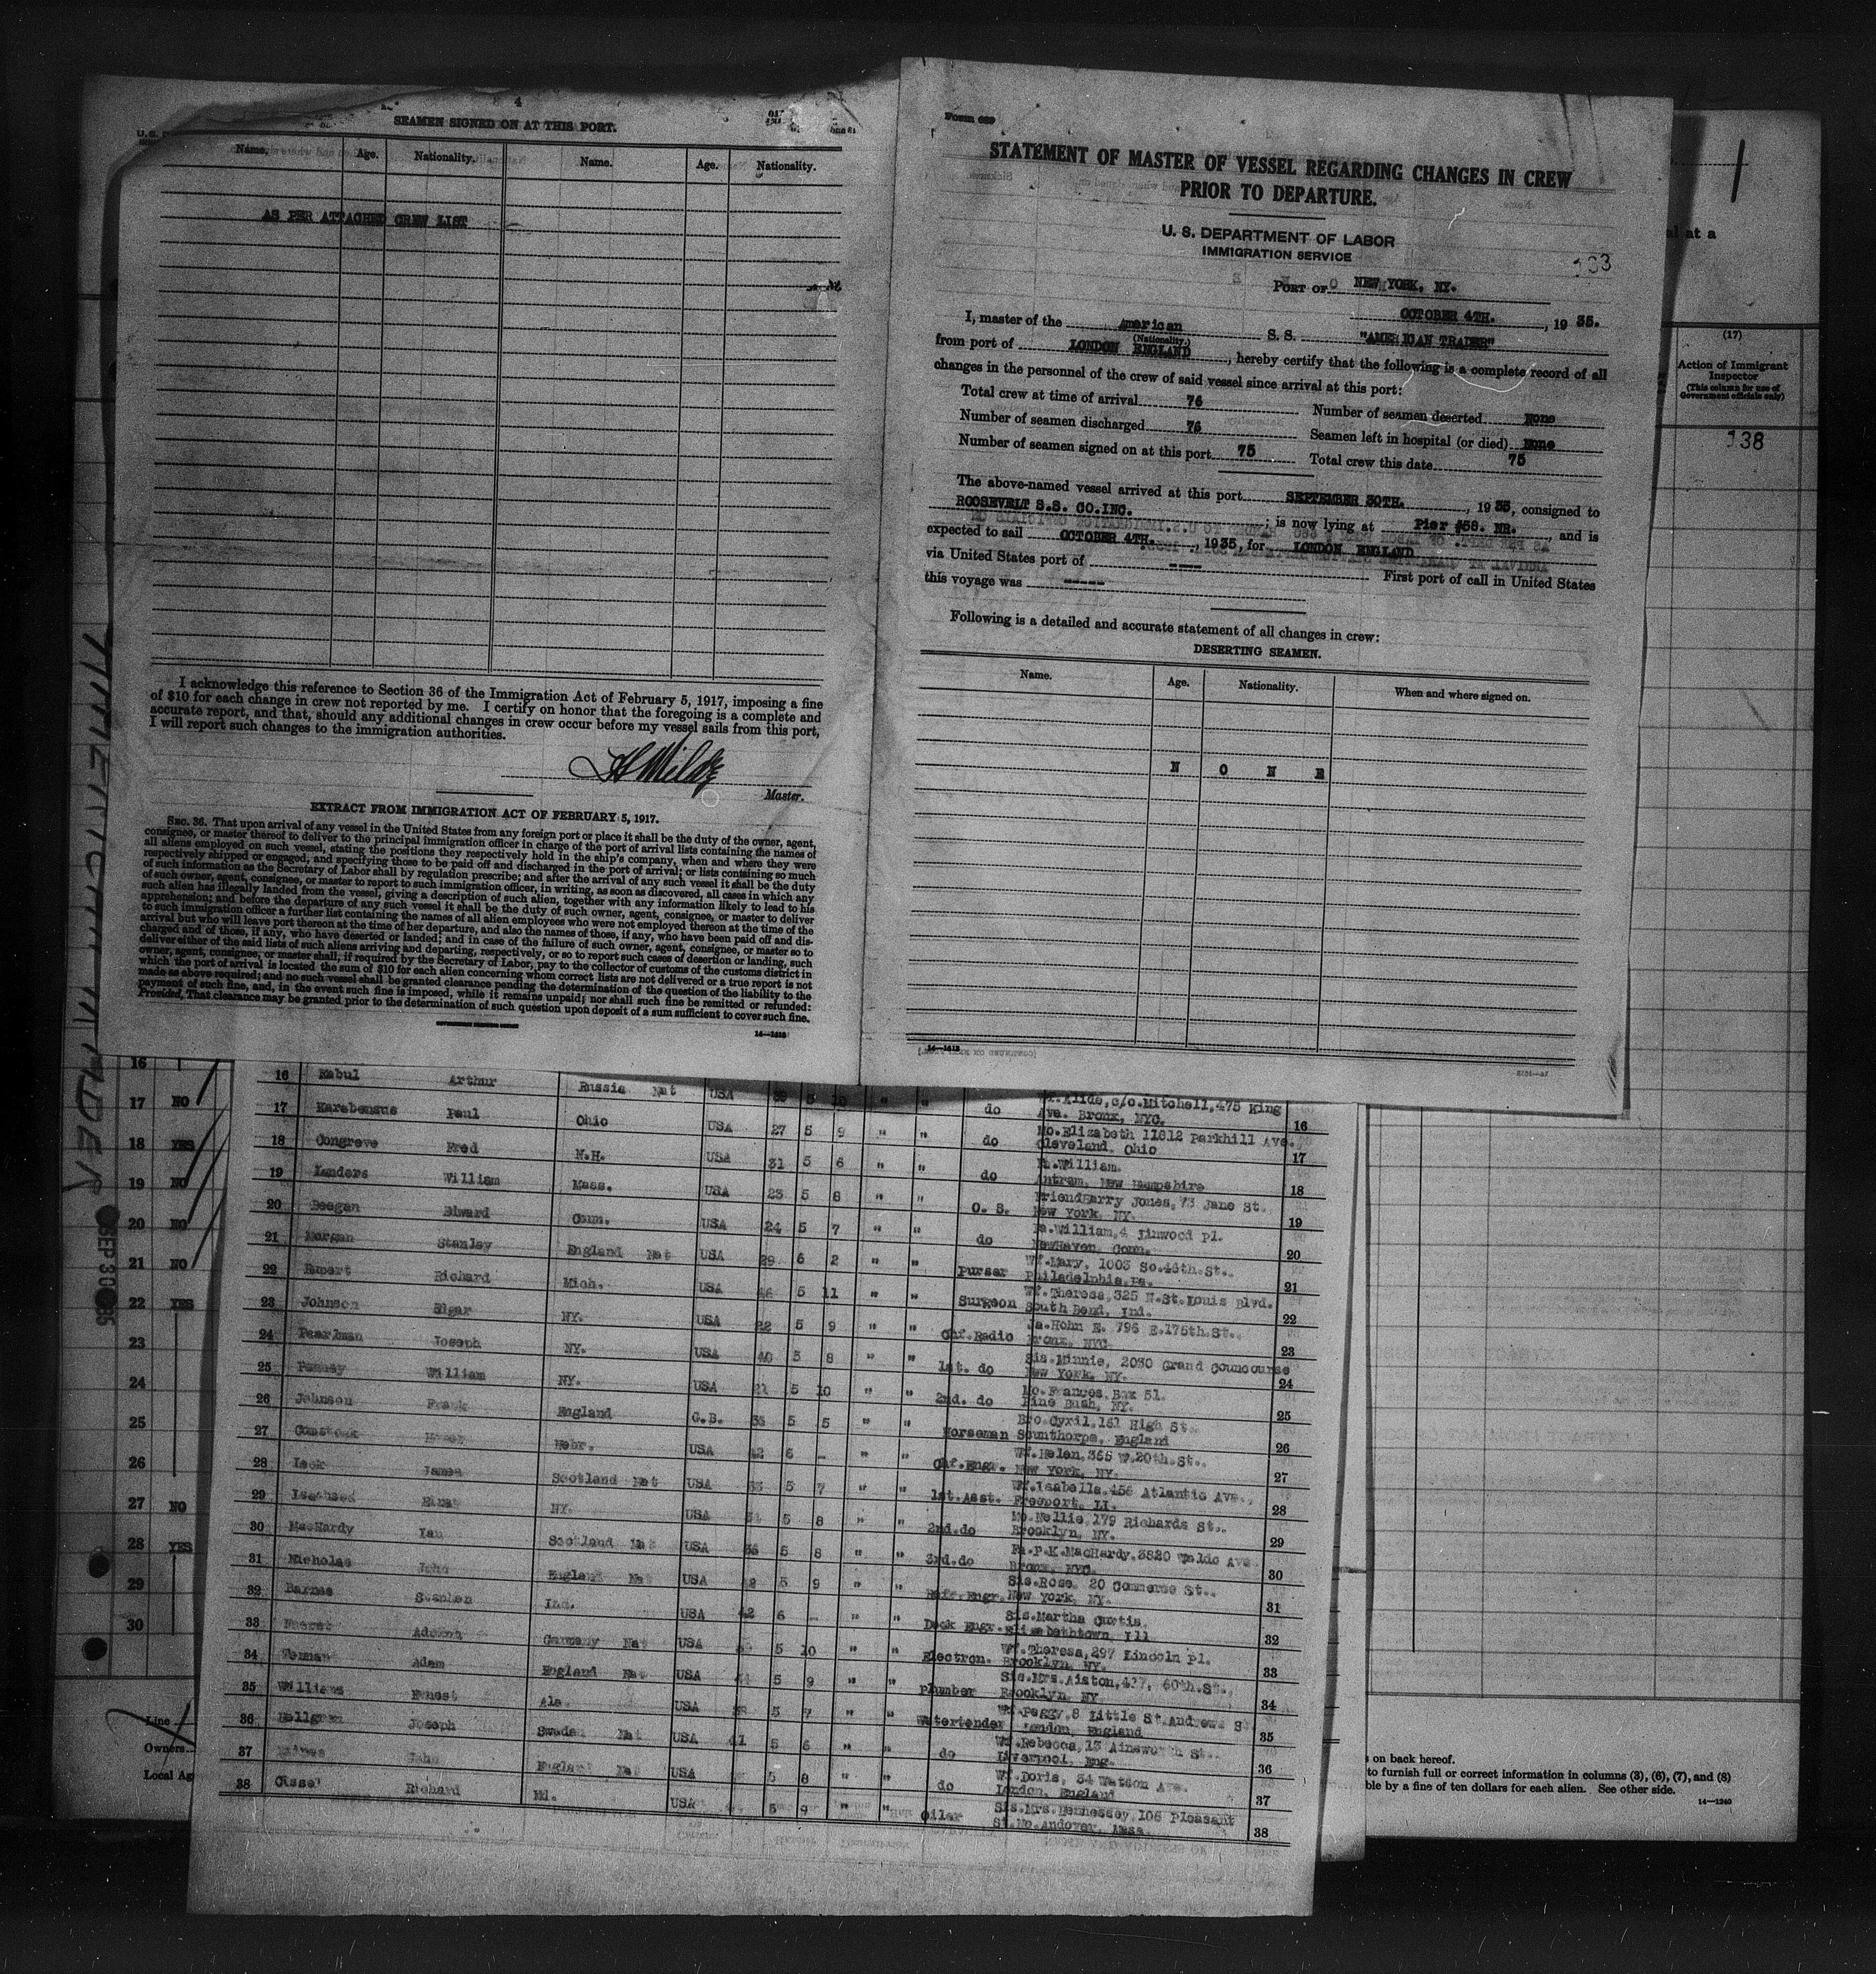 SEAMEN SIGNED ON AT THIS PORT.
Name. Age. Nationality. Name. Age. Nationality.
AS PER ATTACHED CREW LIST
I acknowledge this reference to Section 36 of the Immigration Act of February 5, 1917, imposing a fine
of $10 for each change in crew not reported by me. I certify on honor that the foregoing is a complete and
accurate report, and that, should any additional changes in crew occur before my vessel sails from this port,
I will report such changes to the immigration authorities.
Master.
EXTRACT FROM IMMIGRATION ACT OF FEBRUARY 5, 1917.
SEC. 36. That upon arrival of any vessel in the United States from any foreign port or place it shall be the duty of the owner, agent,
consignee, or master thereof to deliver to the principal immigration officer in charge of the port of arrival lists containing the names of
all aliens employed on such vessel, stating the positions they respectively hold in the ship's company, when and where they were
respectively shipped or engaged, and specifying those to be paid off and discharged in the port of arrival; or lists containing so much
of such information as the Secretary of Labor shall by regulation prescribe; and after the arrival of any such vessel it shall be the duty
of such owner, agent, consignee, or master to report to such immigration officer, in writing, as soon as discovered, all cases in which any
such alien has illegally landed from the vessel, giving a description of such alien, together with any information likely to lead to his
apprehension; and before the departure of any such vessel it shall be the duty of such owner, agent, consignee, or master to deliver
to such immigration officer a further list containing the names of all alien employees who were not employed thereon at the time of the
arrival but who will leave port thereon at the time of her departure, and also the names of those, if any, who have been paid off and dis-
charged and of those, if any, who have deserted or landed; and in case of the failure of such owner, agent, consignee, or master so to
deliver either of the said lists of such aliens arriving and departing, respectively, or so to report such cases of desertion or landing, such
owner, agent, consignee, or master shall, if required by the Secretary of Labor, pay to the collector of customs of the customs district in
which the port of arrival is located the sum of $10 for each alien concerning whom correct lists are not delivered or a true report is not
made as above required; and no such vessel shall be granted clearance pending the determination of the question of the liability to the
payment of such fine, and, in the event such fine is imposed, while it remains unpaid; nor shall such fine be remitted or refunded:
Provided, That clearance may be granted prior to the determination of such question upon deposit of a sum sufficient to cover such fine.
14—1613
STATEMENT OF MASTER OF VESSEL REGARDING CHANGES IN CREW
PRIOR TO DEPARTURE.
U. S. DEPARTMENT OF LABOR
IMMIGRATION SERVICE
PORT OF NEW YORK, NY.
OCTOBER 4TH. , 19 35.
I, master of the American S. S. "AMERICAN TRADER"
(Nationality.)
from port of LONDON ENGLAND , hereby certify that the following is a complete record of all
changes in the personnel of the crew of said vessel since arrival at this port:
Total crew at time of arrival 76 Number of seamen deserted None
Number of seamen discharged 76 Seamen left in hospital (or died) None
Number of seamen signed on at this port 75 Total crew this date 75
The above-named vessel arrived at this port SEPTEMBER 30TH. , 19 35, consigned to
ROOSEVELT S.S. CO.INC. ; is now lying at Pier #58. NR. , and is
expected to sail OCTOBER 4TH. , 1935, for LONDON ENGLAND
via United States port of ---- First port of call in United States
this voyage was -----
Following is a detailed and accurate statement of all changes in crew:
DESERTING SEAMEN.
Name. Age. Nationality. When and where signed on.
N O N E
14—1613
1
al at a
(17)
Action of Immigrant
Inspector
(This column for use of
Government officials only)
138
16 Arthur Russia Nat USA 5 10 " " do c/o.Mitchell,475 King
Ave. Bronx, NYC. 16
17 Paul Ohio USA 27 5 9 " " do Mo.Elizabeth 11812 Parkhill Ave.
Cleveland, Ohio 17
18 Congreve Fred N.H. USA 31 5 6 " " do Fa.William.
Antram, New Hampshire 18
19 Landers William Mass. USA 23 5 8 " " O. S. Friend Harry Jones, 73 Jane St.
New York, NY. 19
20 Edward Conn. USA 24 5 7 " " do Fa.William,4 Linwood Pl.
NewHaven, Conn. 20
21 Morgan Stanley England Nat USA 29 6 2 " " Purser Wf.Mary, 1003 So.46th.St..
Philadelphia,Pa. 21
22 Rupert Richard Mich. USA 5 11 " " Surgeon Wf.Theresa,325 N.St.Louis Blvd.
South Bend, Ind. 22
23 Johnson Edgar NY. USA 22 5 9 " " Chf.Radio Fa.Hohn E. 796 E.175th.St..
Bronx, NYC 23
24 Pearlman Joseph NY. USA 40 5 8 " " 1st. do Sis.Minnie, 2030 Grand Councourse
New York, NY. 24
25 William NY. USA 21 5 10 " " 2nd. do Mo.Frances, Box 51.
Pine Bush, NY. 25
26 Johnson Frank England G.B. 5 5 " " Horseman Bro.Cyril,161 High St..
Scunthorpe, England 26
27 Nebr. USA 42 6 _ " " Chf.Engr. Wf.Helen,365 W.20th.St..
New York, NY. 27
28 James Scotland Nat USA 5 7 " " 1st.Asst. Wf.Isabella,456 Atlantic Ave.,
Freeport, LI. 28
29 NY. USA 5 8 " " 2nd.do Mo.Nellie,179 Richards St..
Brooklyn, NY. 29
30 MacHardy Ian Scotland Nat USA 5 8 " " 3rd.do Fa.P.K.MacHardy,3820 Waldo Ave
Bronx, NYC. 30
31 Nicholas John England Nat USA 5 9 " " Refr.Engr. Sis.Rose, 20 Commerce St..
New York, NY. 31
32 Barnes Stephen Ind. USA 42 6 _ " " Deck Engr. Sis.Martha Curtis.
Elizabethtown, Ill 32
33 Germany Nat USA 5 10 " " Electron. Wf.Theresa,297 Lincoln Pl.
Brooklyn, NY. 33
34 Adam England Nat USA 5 9 " " Plumber Sis.Mrs.Aiston,437, 60th.St.,
Brooklyn, NY 34
35 Williams Ernest Ala. USA 5 7 " " Watertender Wf.Peggy,8 Little St.Andrews S
London, England 35
36 Joseph Sweden Nat USA 41 5 6 " " do Wf.Rebecca,13 Ainsworth St..
Liverpool, Eng. 36
37 John England Nat USA 5 8 " " do Wf.Doris, 54 Watson Ave.
London, England 37
38 Richard Md. USA 5 9 " " Oiler Sis.Mrs.Hennessey,106 Pleasant
St.No.Andover, Mass. 38
16
17 NO
18 YES
19 NO
20 NO
21 NO
22 YES
23
24
25
26
27 NO
28 YES
29
30
SEP 30 1935
Line
Owners
Local Ag
on back hereof.
to furnish full or correct information in columns (3), (6), (7), and (8)
ble by a fine of ten dollars for each alien. See other side.
14—1240